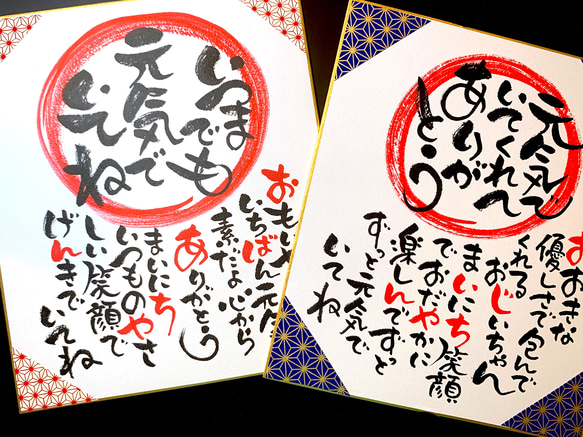 いつまでも
元気で
いてね
いちばん元気
素だよ心から
ありがとう
まいにち
いつものやさ
しい笑顔で
げんきでいてね
元気で
いてくれて
ありが
とう
おおきな
優しさで包んで
くれる
おじいちゃん
まいにち笑顔
でおだやかに
楽しんでずっと
ずっと元気で
いてね